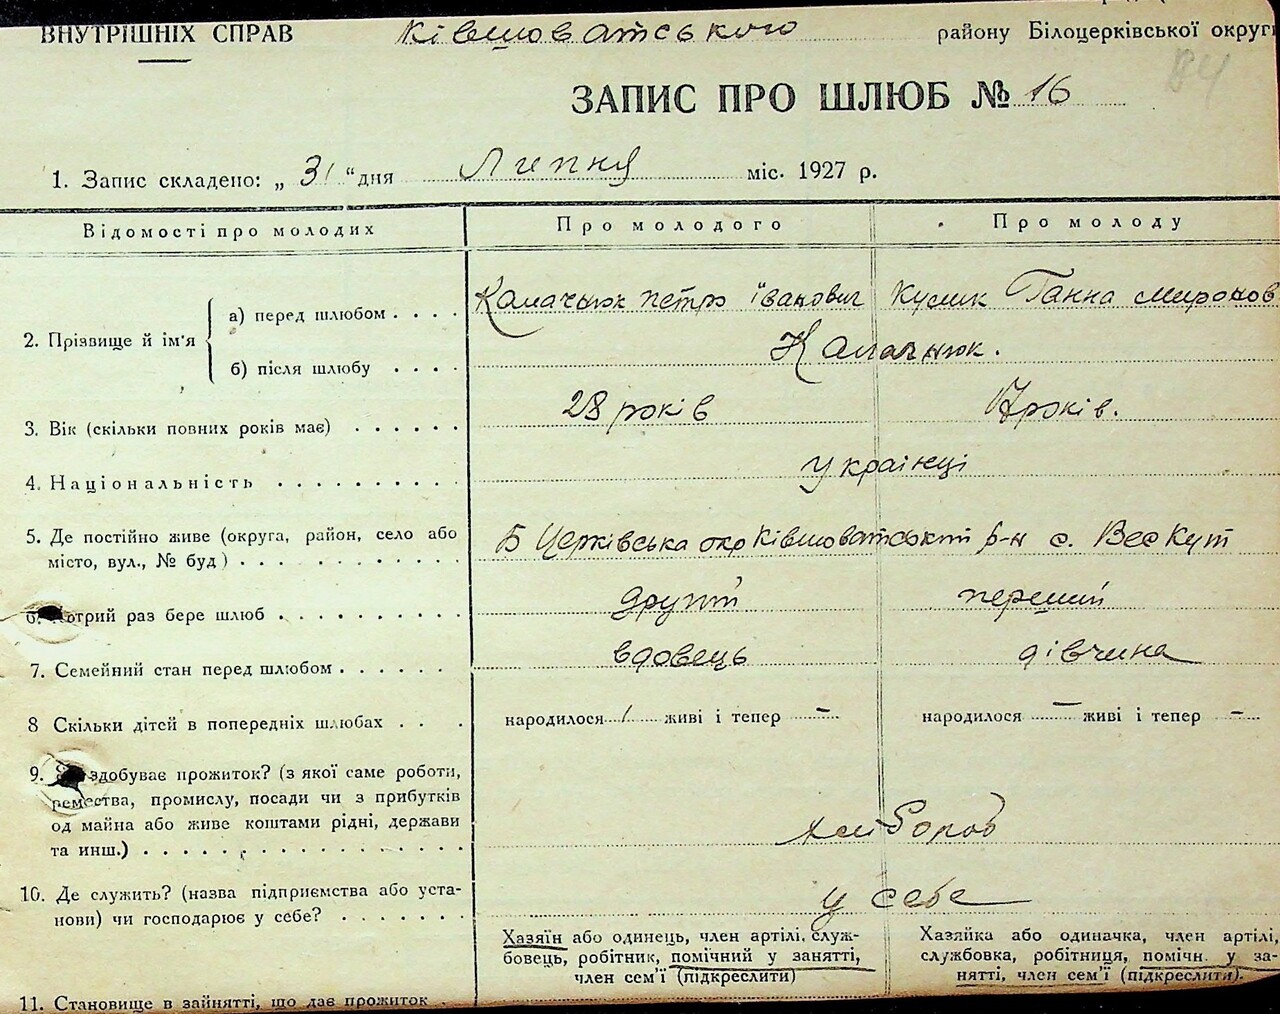 ВНУТРІШНІХ СПРАВ Ківшоватського району Білоцерківської округи
84
ЗАПИС ПРО ШЛЮБ № 16
1. Запис складено: „ 31 “ дня Липня міс. 1927 р.
Відомості про молодих Про молодого Про молоду
2. Прізвище й ім'я
а) перед шлюбом . . . . Калачнюк Петро Іванович Кулик Ганна Миронов
б) після шлюбу . . . . Калачнюк.
3. Вік (скільки повних років має) . . . . . . 28 років 17 років.
4. Національність . . . . . . . . . . Українці
5. Де постійно живе (округа, район, село або
місто, вул., № буд) . . . . . . . . . . Б Церківська окр Ківшоватський р-н с. Вескут
6. Котрий раз бере шлюб . . . . . . . . . другий перший
7. Семейний стан перед шлюбом . . . . . . вдовець дівчина
8 Скільки дітей в попередніх шлюбах . . . народилося 1 живі і тепер — народилося — живі і тепер —
9. здобуває прожиток? (з якої саме роботи,
ремества, промислу, посади чи з прибутків
од майна або живе коштами рідні, держави
та инш.) . . . . . . . . . . . . . . . хлібороб
10. Де служить? (назва підприємства або уста-
нови) чи господарює у себе? . . . . . . у себе
Хазяїн або одинець, член артілі, служ-
бовець, робітник, помічний у занятті,
член сем'ї (підкреслити)
Хазяйка або одиначка, член артілі,
службовка, робітниця, помічн. у за-
нятті, член сем'ї (підкреслити).
11. Становище в зайнятті, що дає прожиток